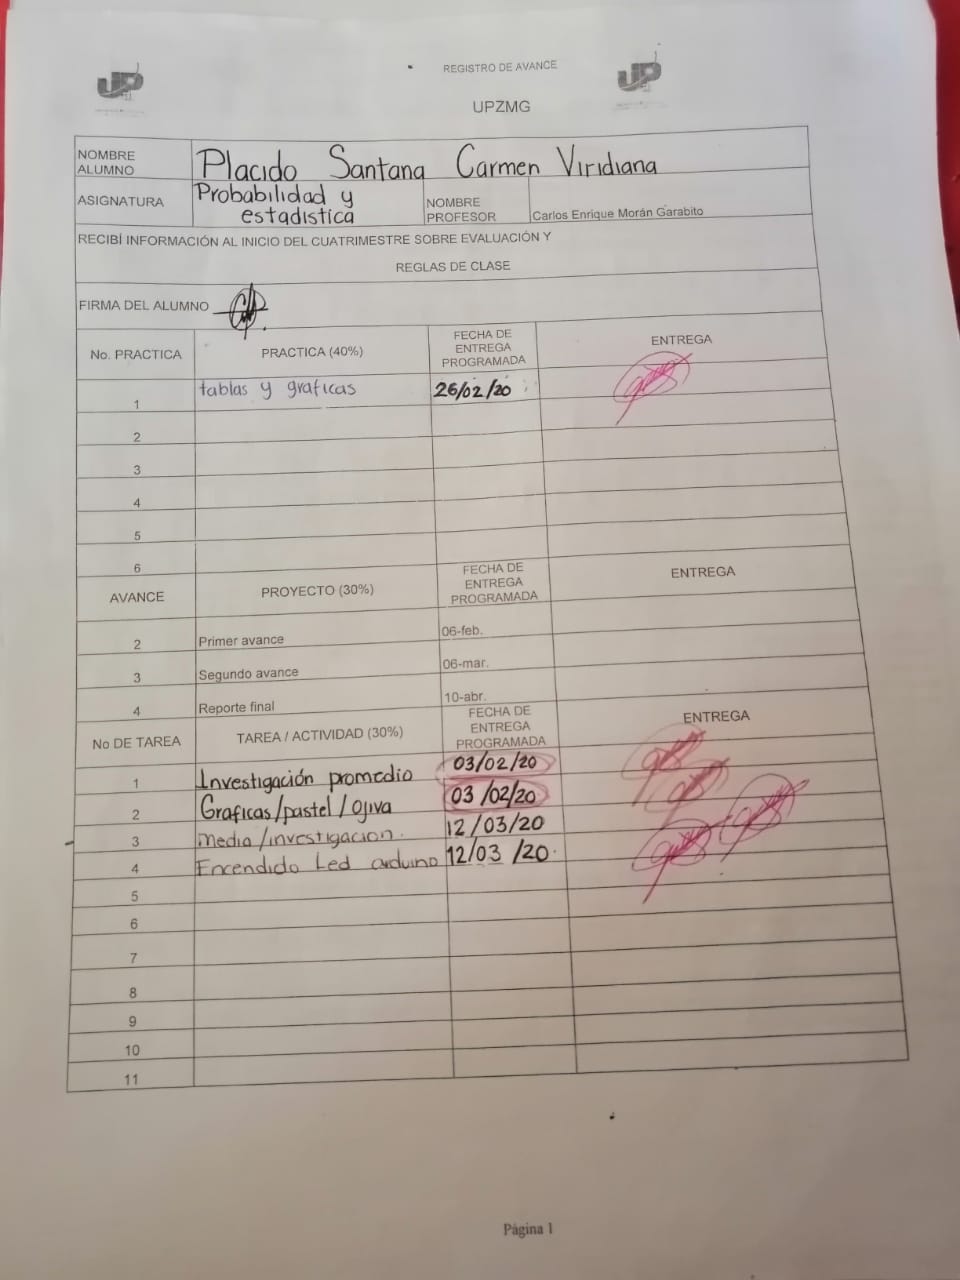 UP
REGISTRO DE AVANCE
UP
UPZMG
NOMBRE ALUMNO Placido Santana Carmen Viridiana
ASIGNATURA Probabilidad y estadistica NOMBRE PROFESOR Carlos Enrique Morán Garabito
RECIBÍ INFORMACIÓN AL INICIO DEL CUATRIMESTRE SOBRE EVALUACIÓN Y
REGLAS DE CLASE
FIRMA DEL ALUMNO
No. PRACTICA PRACTICA (40%) FECHA DE ENTREGA PROGRAMADA ENTREGA
1 tablas y graficas 26/02/20
2
3
4
5
6
AVANCE PROYECTO (30%) FECHA DE ENTREGA PROGRAMADA ENTREGA
2 Primer avance 06-feb.
3 Segundo avance 06-mar.
4 Reporte final 10-abr.
No DE TAREA TAREA / ACTIVIDAD (30%) FECHA DE ENTREGA PROGRAMADA ENTREGA
1 Investigación promedio 03/02/20
2 Graficas/pastel/ojiva 03/02/20
3 media/investigacion. 12/03/20
4 Encendido Led arduino 12/03/20
5
6
7
8
9
10
11
Página 1